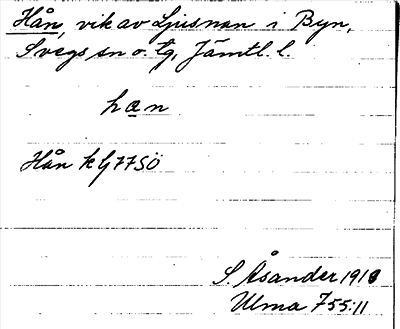 Hån, vik av Ljusnan i Byn,
Svegs sn o. tg, Jämtl. l.
han
Hån k G77SÖ
S. Åsander 1918
Ulma 755:11